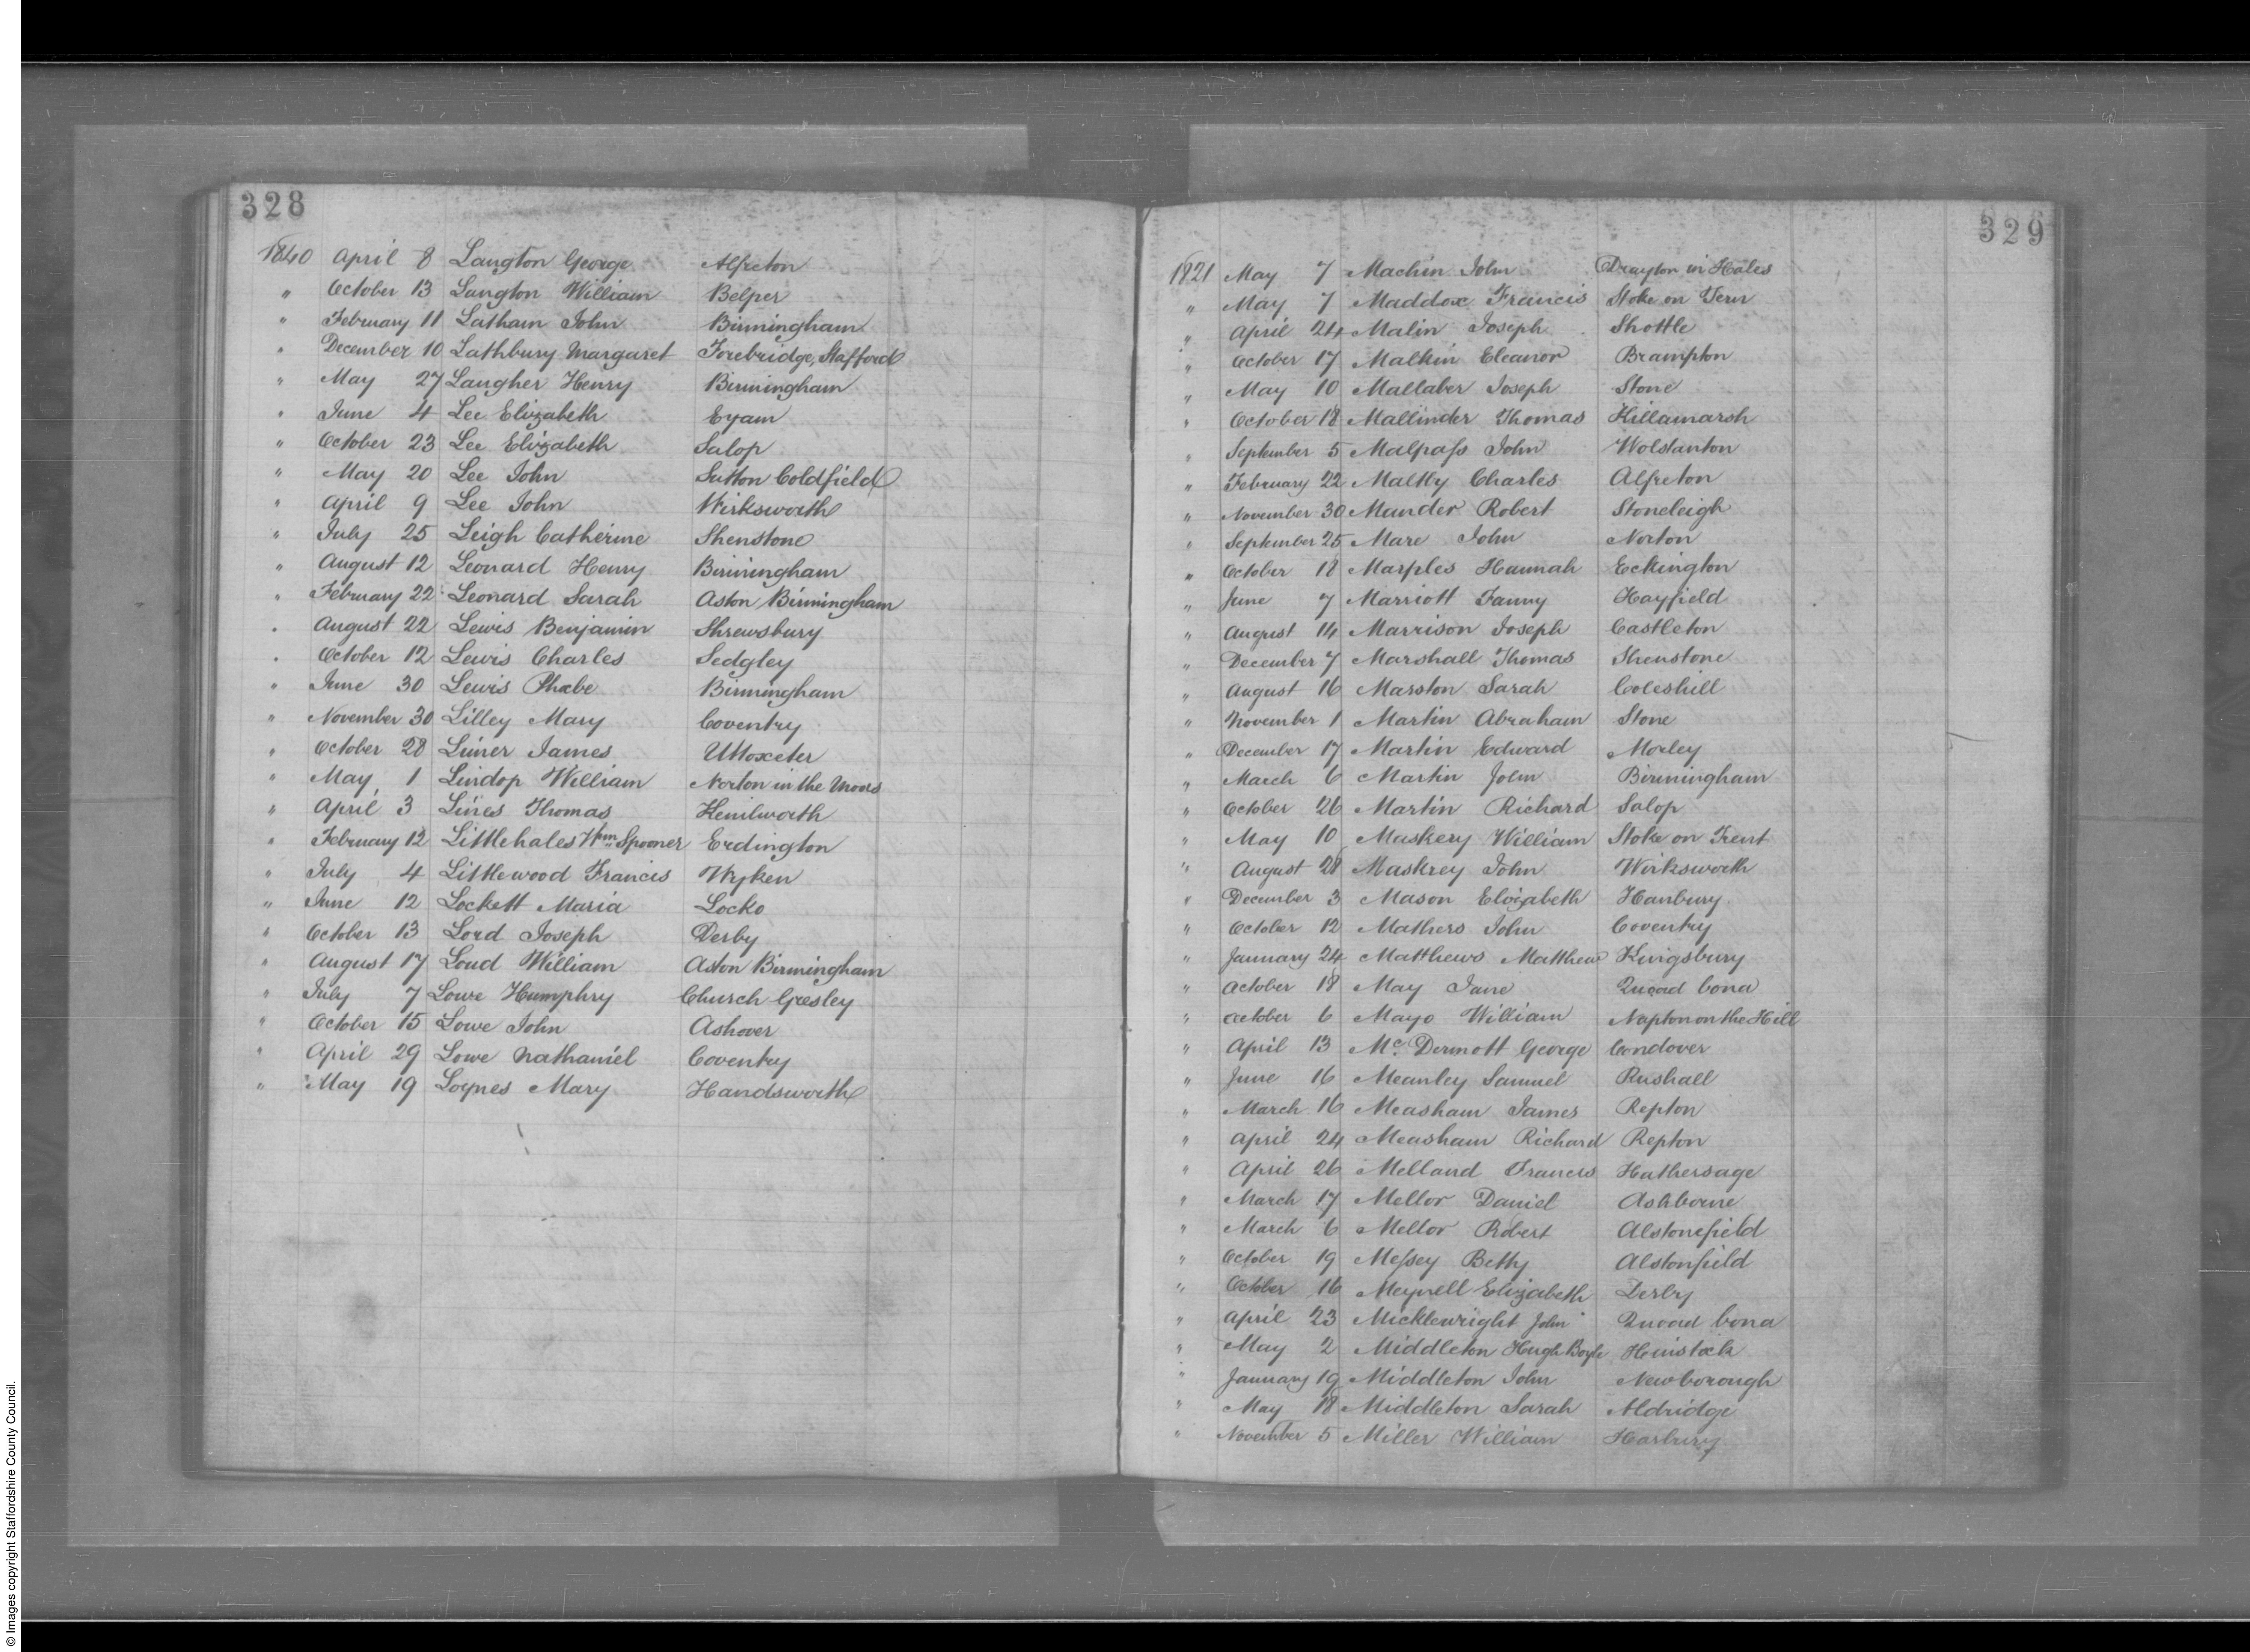 328
1840 April 8 Langton George Alfreton
" October 13 Langton William Belper
" February 11 Latham John Birmingham
" December 10 Lathbury Margaret Forebridge, Stafford
" May 27 Laugher Henry Birmingham
" June 4 Lee Elizabeth Eyam
" October 23 Lee Elizabeth Salop
" May 20 Lee John Sutton Coldfield
" April 9 Lee John Wirksworth
" July 25 Leigh Catherine Shenstone
" August 12 Leonard Henry Birmingham
" February 22 Leonard Sarah Aston Birmingham
" August 22 Lewis Benjamin Shrewsbury
" October 12 Lewis Charles Sedgley
" June 30 Lewis Phœbe Birmingham
" November 30 Lilley Mary Coventry
" October 28 Limer James Uttoxeter
" May 1 Lindop William Norton in the Moors
" April 3 Lines Thomas Kenilworth
" February 12 Littlehales Wm Spooner Erdington
" July 4 Littlewood Francis Wyken
" June 12 Lockett Maria Locko
" October 13 Lord Joseph Derby
" August 17 Loud William Aston Birmingham
" July 7 Lowe Humphry Church Gresley
" October 15 Lowe John Ashover
" April 29 Lowe Nathaniel Coventry
" May 19 Loynes Mary Handsworth
329
1821 May 7 Machin John Drayton in Hales
" May 7 Maddox Francis Stoke on Tern
" April 24 Malin Joseph Shottle
" October 17 Malkin Eleanor Brampton
" May 10 Mallaber Joseph Stone
" October 18 Mallinder Thomas Killamarsh
" September 5 Malpass John Wolstanton
" February 22 Maltby Charles Alfreton
" November 30 Mander Robert Stoneleigh
" September 25 Mare John Norton
" October 18 Marples Hannah Eckington
" June 7 Marriott Fanny Hayfield
" August 14 Marrison Joseph Castleton
" December 7 Marshall Thomas Shenstone
" August 16 Marston Sarah Coleshill
" November 1 Martin Abraham Stone
" December 17 Martin Edward Morley
" March 6 Martin John Birmingham
" October 26 Martin Richard Salop
" May 10 Maskery William Stoke on Trent
" August 28 Maskrey John Wirksworth
" December 3 Mason Elizabeth Hanbury
" October 12 Mathers John Coventry
" January 24 Matthews Matthew Kingsbury
" October 18 May Jane Quoad bona
" October 6 Mayo William Napton on the Hill
" April 13 Mc. Dermott George Condover
" June 16 Meanley Samuel Rushall
" March 16 Measham James Repton
" April 24 Measham Richard Repton
" April 26 Melland Francis Hathersage
" March 17 Mellor Daniel Ashborne
" March 6 Mellor Robert Alstonefield
" October 19 Messey Betty Alstonfield
" October 16 Meynell Elizabeth Derby
" April 23 Micklewright John Quoad bona
" May 2 Middleton Hugh Boyle Hinstock
" January 19 Middleton John Newborough
" May 18 Middleton Sarah Aldridge
" November 5 Miller William Harbury
© Images copyright Staffordshire County Council.